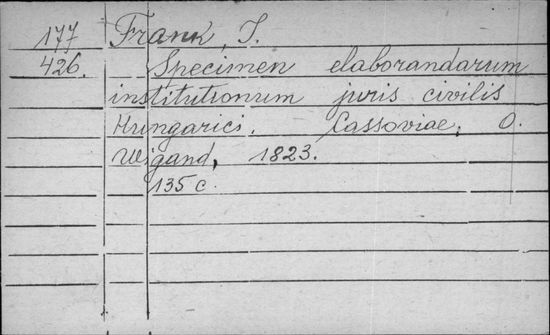 177 Frank, I.
426. Specimen elaborandarum
institutionum juris civilis
Hungarici. Cassoviae, O.
Wigand, 1823.
135 c.